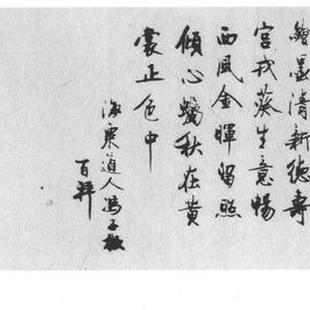 繪墨清新德壽
宮戎葵生意暢
西風金暉留照
傾心秋在黄
裳正色中
海粟道人馮子振
百拜